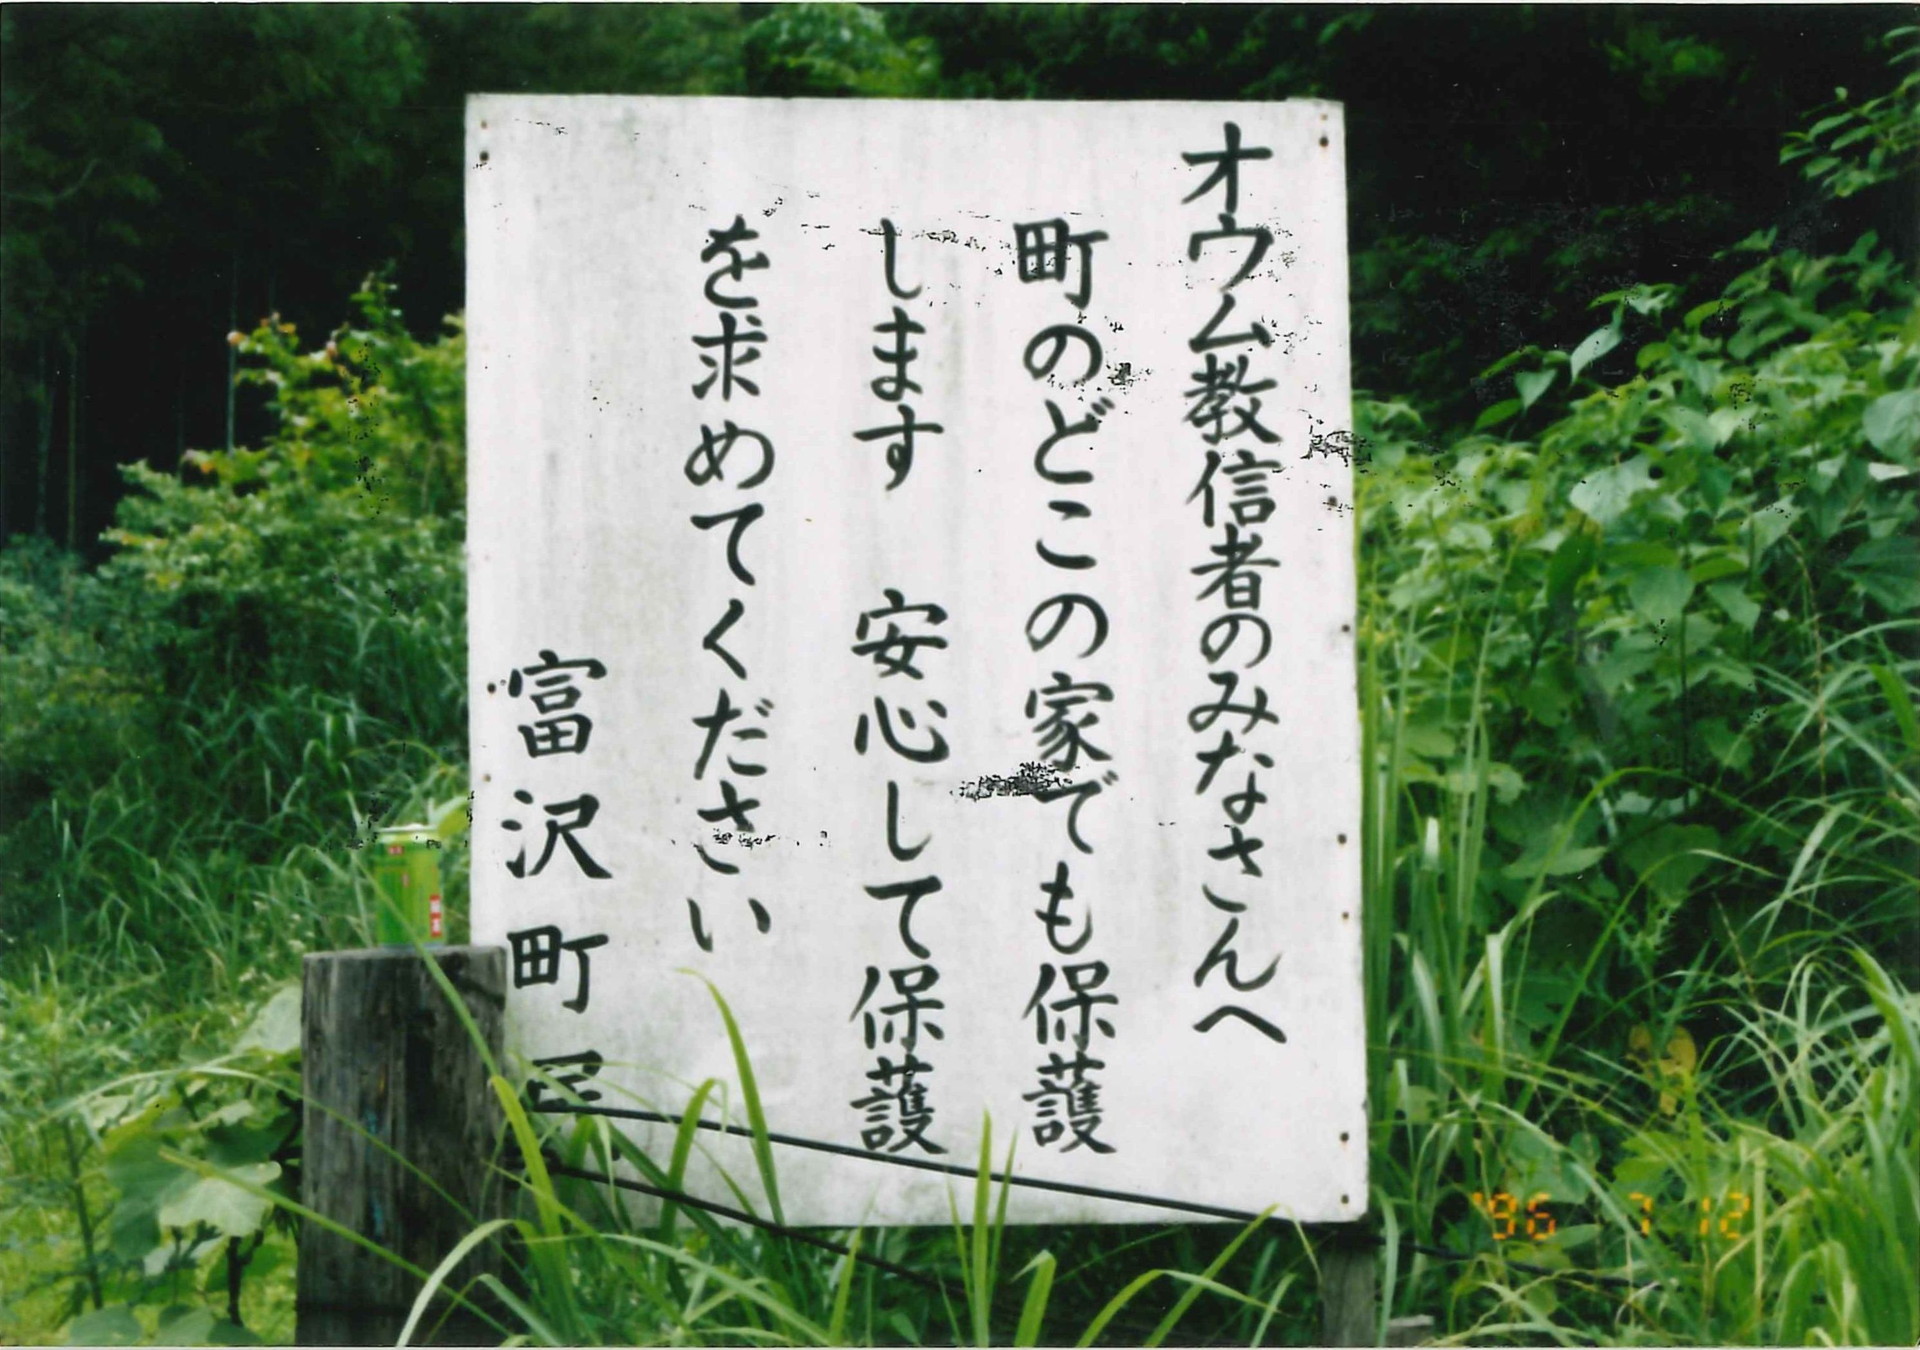 オウム教信者のみなさんへ
町のどこの家でも保護
します 安心して保護
を求めてください
富沢町
'96 7 12